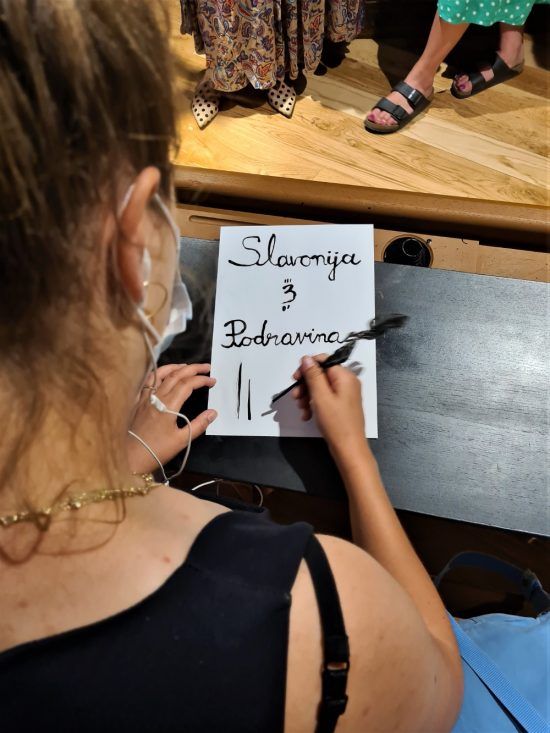 Slavonija
&
Podravina